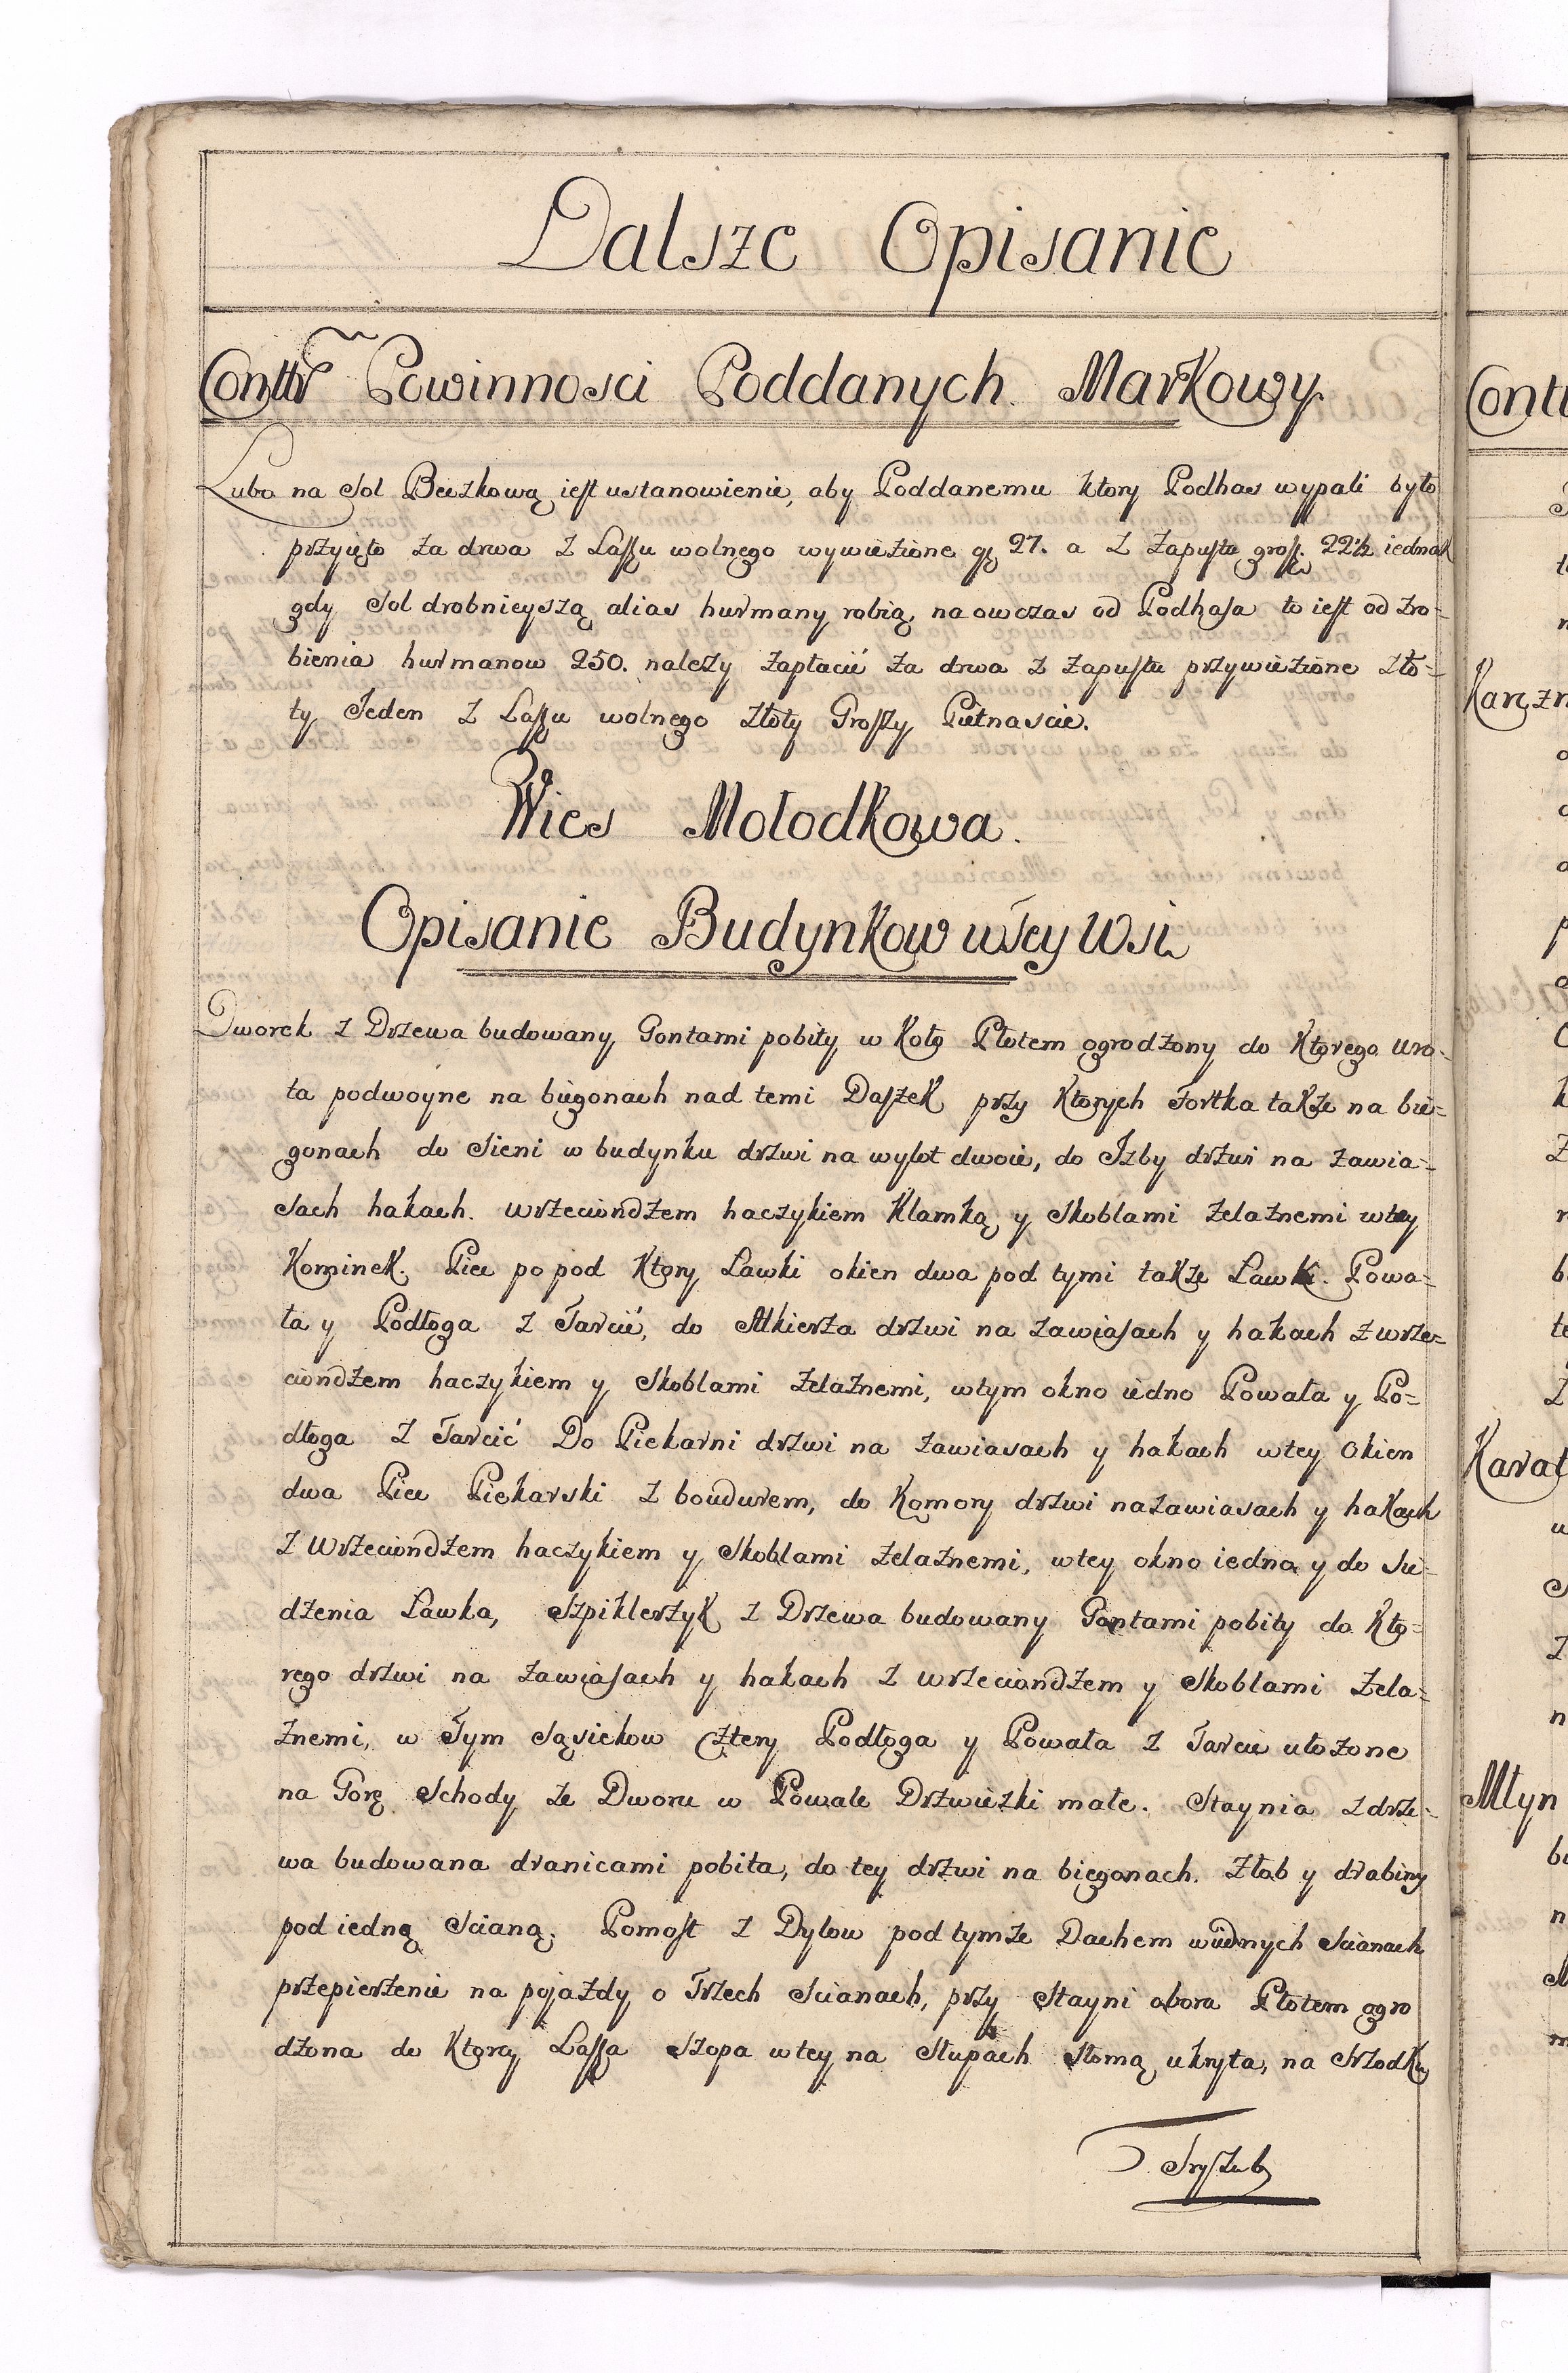 Dalsze Opisanie
Conttr Powinnosci Poddanych Markowy.
Lubo na Sol Beczkową iest ustanowienie, aby Poddanemu ktory Podhas wypali było
przyięto za drwa z Lassu wolnego wywiezione gr 27. a z Zapustu gross. 22½ iednak
gdy Sol drobnieyszą alias hurmany robią, na owczas od Podhasa to iest od zro-
bienia hurmanow 250. należy zapłacić za drwa z zapustu przywiezione zło-
ty Jeden z Lassu wolnego złoty Groszy Pietnascie.
Wies Mołodkowa.
Opisanie Budynkow w Tey Wsi
Dworek z Drzewa budowany Gontami pobity w Koło Płotem ogrodzony do Ktorego wro-
ta podwoyne na biegonach nad temi Daszek przy Ktorych Fortka także na bie-
gonach do Sieni w budynku drzwi na wylot dwoie, do Izby drzwi na zawia-
sach hakach. wrzeciondzem haczykiem Klamką y Skoblami żelaznemi w tey
Kominek. Piec po pod Ktory Ławki okien dwa pod tymi także Ławki. Powa-
ła y Podłoga z Tarcić, do Alkierza drzwi na zawiasach y hakach z wrze-
ciondzem haczykiem y Skoblami żelaznemi, w tym okno iedno Powała y Po-
dłoga z Tarcić Do Piekarni drzwi na zawiasach y hakach w tey Okien
dwa Piec Piekarski z boudurem, do Komory drzwi na zawiasach y hakach
z Wrzeciondzem haczykiem y Skoblami żelaznemi, w tey okno iedno y do Sie-
dzenia Ławka, Szpiklerzyk z Drzewa budowany Gontami pobity do Kto-
rego drzwi na zawiasach y hakach z wrzeciondzem y Skoblami żela-
znemi, w Tym Sąsiekow Cztery Podłoga y Powała z Tarcic ułożone
na Gorę Schody ze Dworu w Powale Drzwiczki małe. Staynia z drze-
wa budowana dranicami pobita, do tey drzwi na biegonach. Złob y drabiny
pod iedną Scianą. Pomost z Dylow pod tymże Dachem w iednych Scianach
przepierzenie na pojazdy o Trzech Scianach, przy Stayni obora Płotem ogro
dzona do Ktorey Lassa Szopa w tey na Słupach Słomą ukryta, na Srzodku